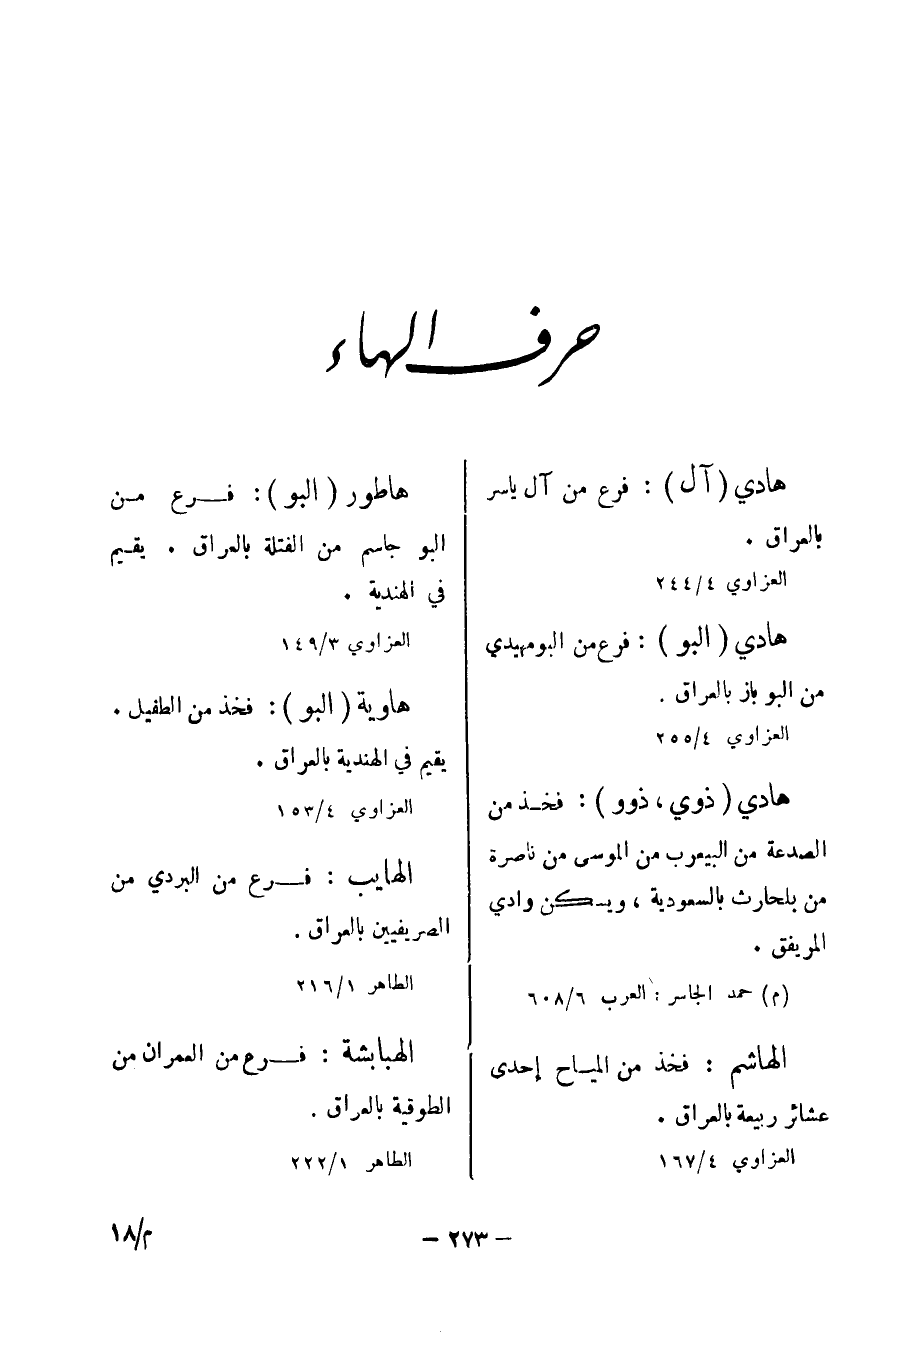 حرف الهاء
هادي (آل) : فرع من آل ياسر
بالعراق .
العزاوي ٢٤٤/٤
هادي (البو) : فرع من البومهيدي
من البو باز بالعراق .
العزاوي ٢٥٥/٤
هادي (ذوي ، ذوو) : فخـذ من
الصدعة من البيعرب من الموسى من ناصرة
من بلحارث بالسعودية ، ويسكن وادي
المريفق .
(م) حمد الجاسر : العرب ٦٠٨/٦
الهاشم : فخذ من الميـاح إحدى
عشائر ربيعة بالعراق .
العزاوي ١٦٧/٤
هاطور (البو) : فـــرع مـن
البو جاسم من الفتلة بالعراق . يقـيم
في الهندية .
العزاوي ١٤٩/٣
هاوية (البو) : فخذ من الطفيل .
يقيم في الهندية بالعراق .
العزاوي ١٥٣/٤
الهايب : فـــرع من البردي من
الصريفيين بالعراق .
الطاهر ٢١٦/١
الهبابشة : فـــرع من العمران من
الطوقية بالعراق .
الطاهر ٢٢٢/١
- ٢٧٣ -
م/١٨